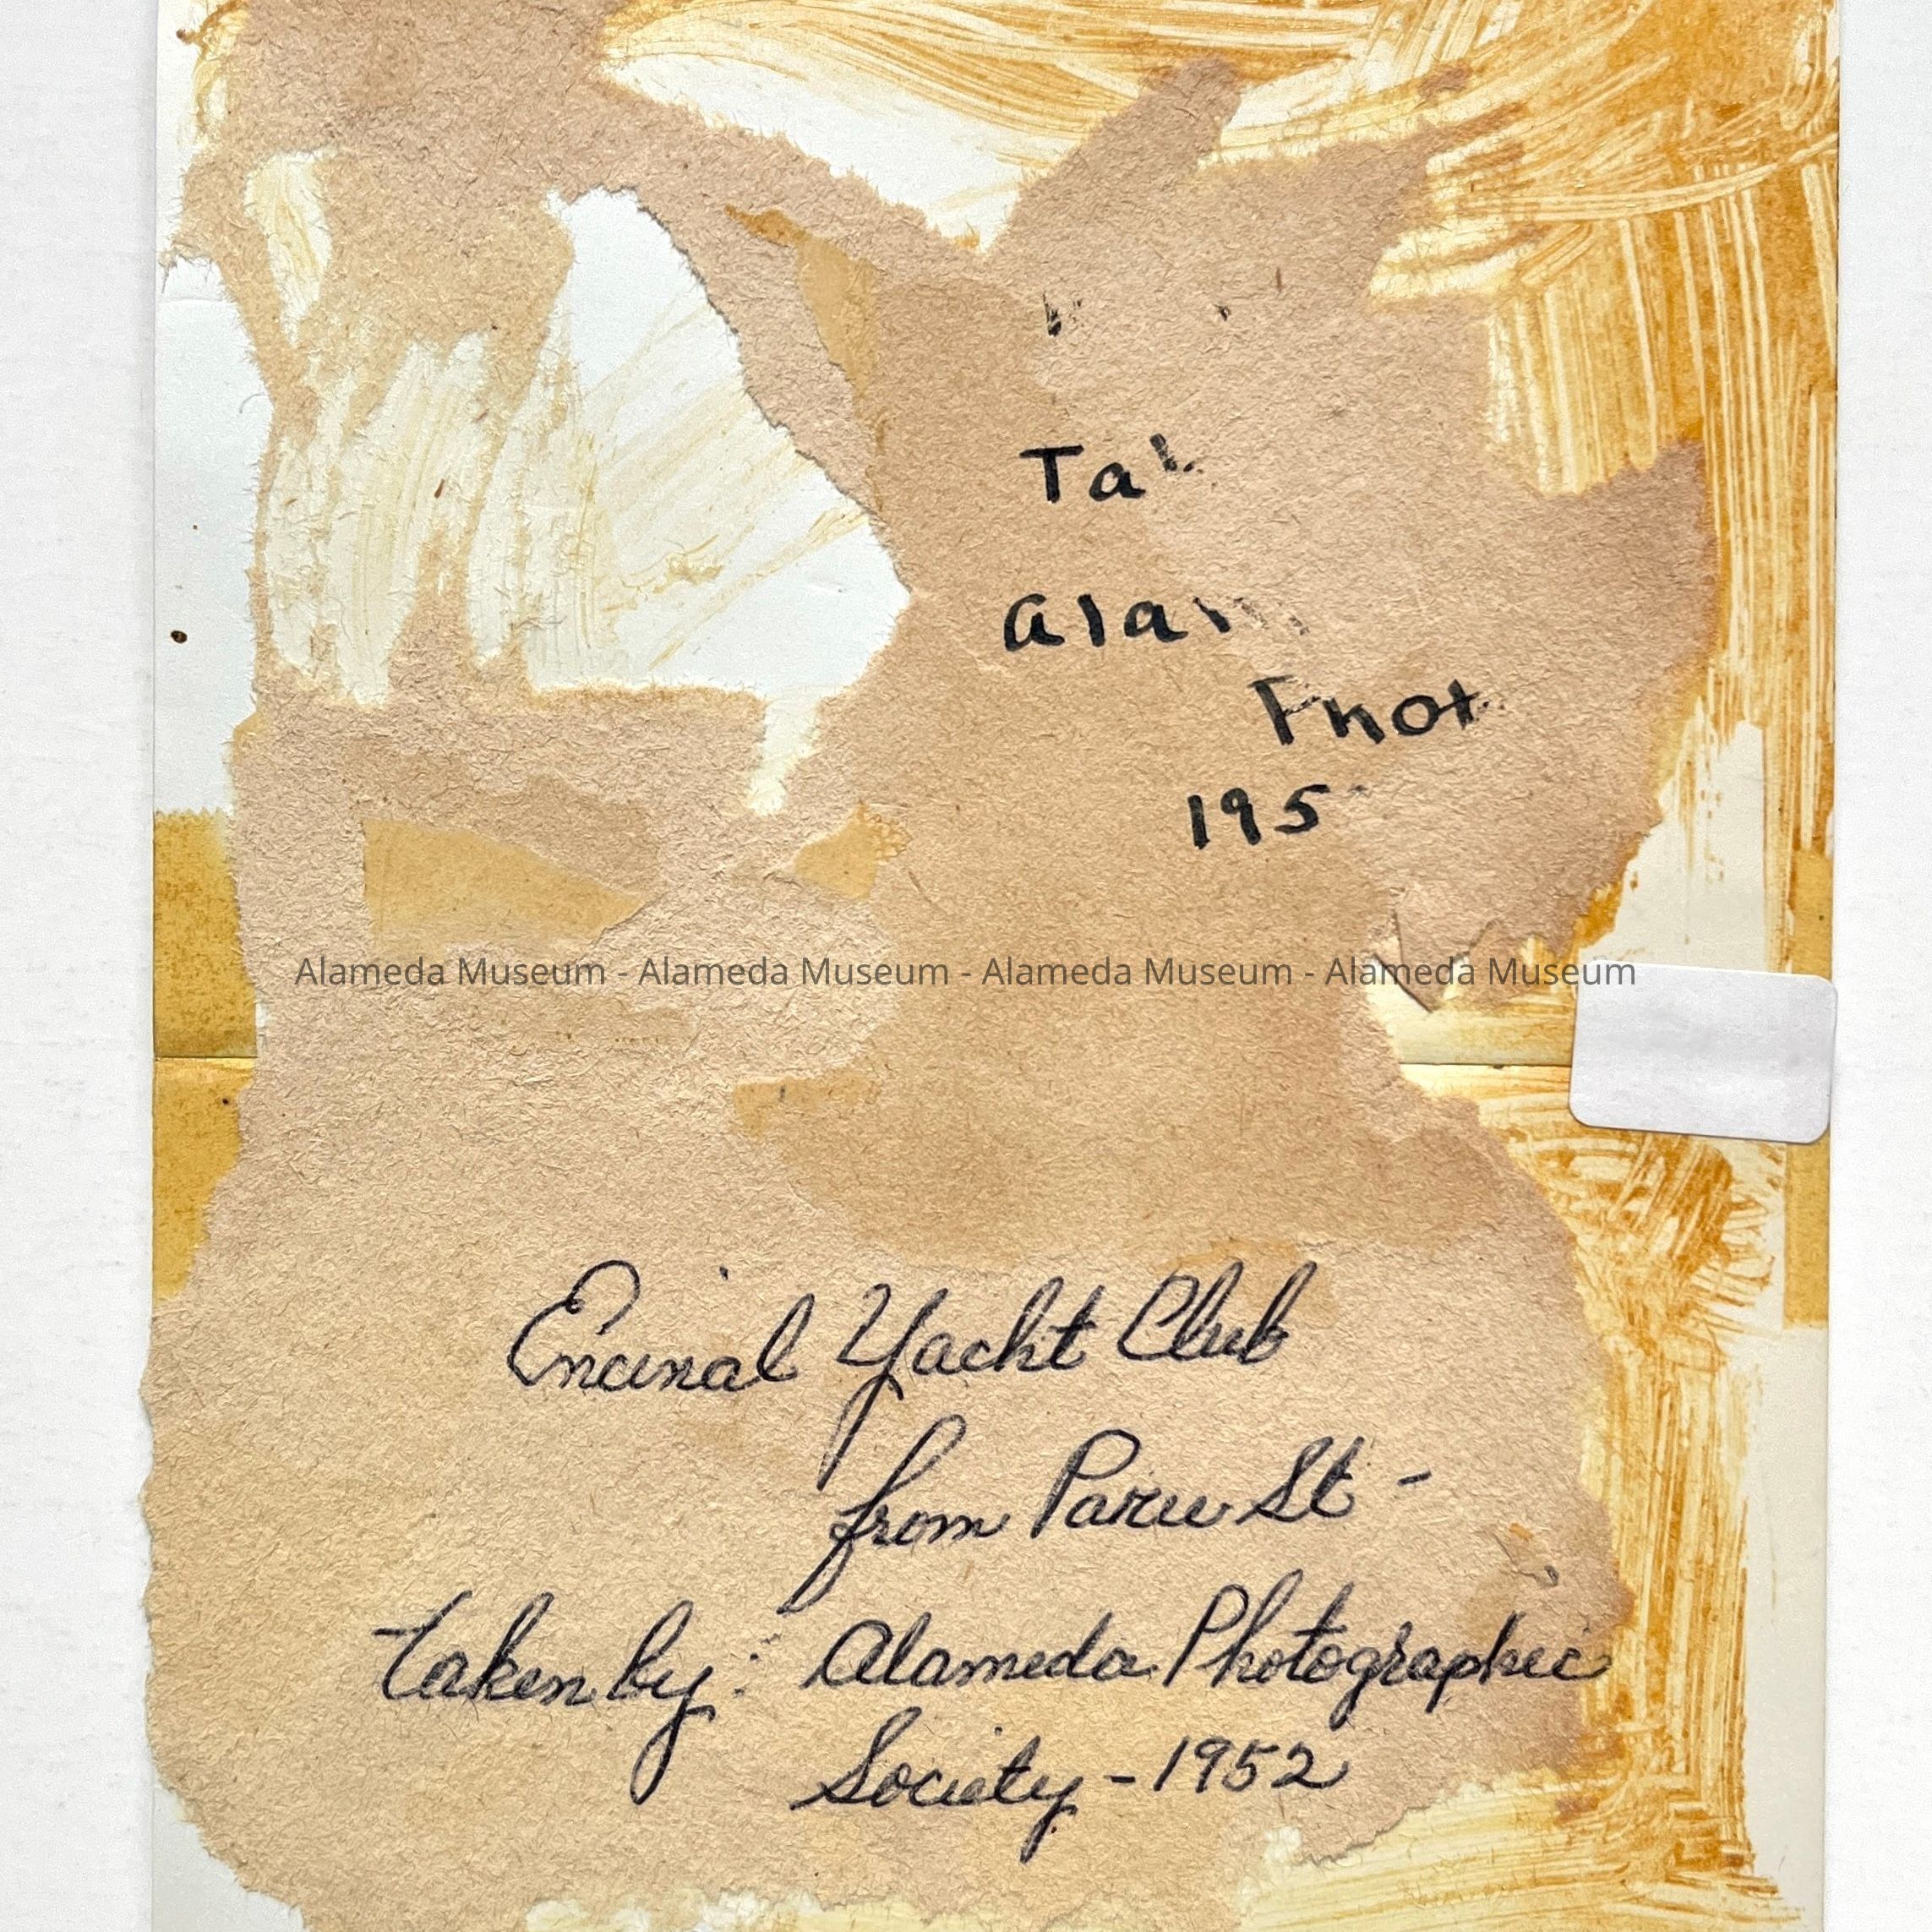 Ta
Alam
Phot
195
Alameda Museum - Alameda Museum - Alameda Museum - Alameda Museum
Encinal Yacht Club
from Paru St -
Taken by: Alameda Photographic
Society - 1952